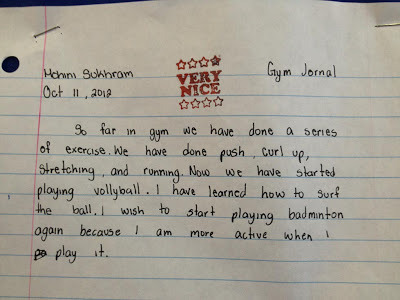 Mohini Sukhram
Gym Jornal
VERY
NICE
Oct 11, 2012
So far in gym we have done a series
of exercise. We have done push, curl up,
stretching, and running. Now we have started
playing vollyball. I have learned how to surf
the ball. I wish to start playing badminton
again because I am more active when I
play it.